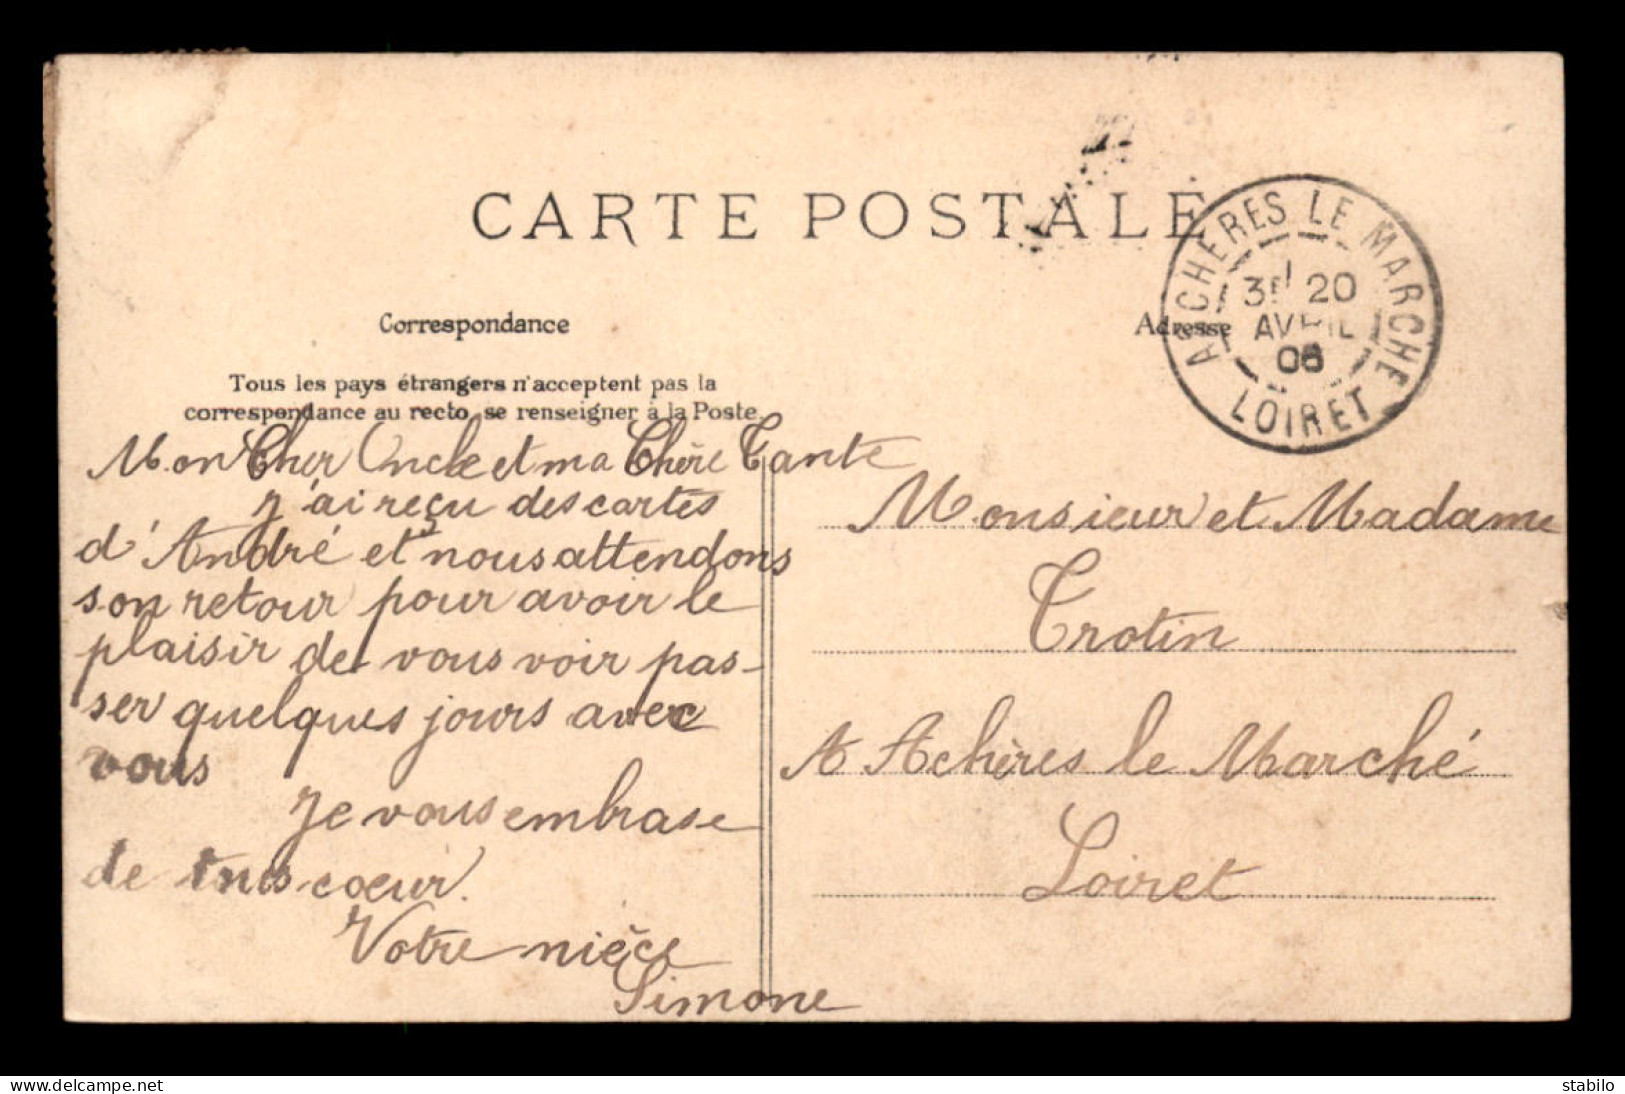 CARTE POSTALE
ACHERES LE MARCHE
20
AVRIL
LOIRET
Correspondance
Adresse
Tous les pays étrangers n'acceptent pas la
correspondance au recto, se renseigner à la Poste.
Mon Cher Oncle et ma Chère Tante
J'ai reçu des cartes
d'André et nous attendons
son retour pour avoir le
plaisir de vous voir pas-
ser quelques jours avec
vous
Je vous embrase
de tous coeur.
Votre nièce
Simone
Monsieur et Madame
Trotin
A Achères le Marché
Loiret
delcampe.net
stabilo